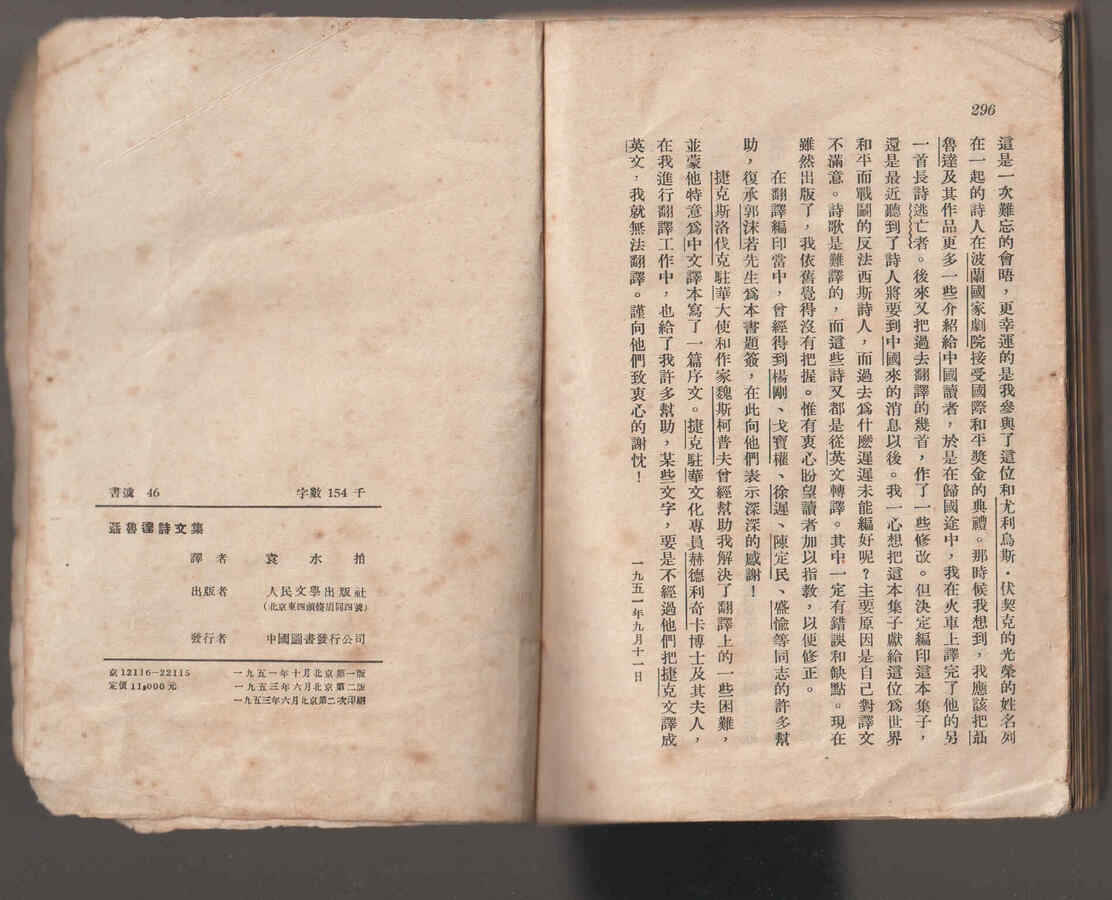 296
這是一次難忘的會晤，更幸運的是我參與了這位和尤利烏斯·伏契克的光榮的姓名列
在一起的詩人在波蘭國家劇院接受國際和平獎金的典禮。那時候我想到，我應該把聶
魯達及其作品更多一些介紹給中國讀者，於是在歸國途中，我在火車上譯完了他的另
一首長詩逃亡者。後來又把過去翻譯的幾首，作了一些修改。但決定編印這本集子，
還是最近聽到了詩人將要到中國來的消息以後。我一心想把這本集子獻給這位爲世界
和平而戰鬭的反法西斯詩人，而過去爲什麽遲遲未能編好呢？主要原因是自己對譯文
不滿意。詩歌是難譯的，而這些詩又都是從英文轉譯。其中一定有錯誤和缺點。現在
雖然出版了，我依舊覺得沒有把握。惟有衷心盼望讀者加以指教，以便修正。
在翻譯編印當中，曾經得到楊剛、戈寶權、徐遲、陳定民、盛愉等同志的許多幫
助，復承郭沫若先生爲本書題簽，在此向他們表示深深的感謝！
捷克斯洛伐克駐華大使和作家魏斯柯普夫曾經幫助我解決了翻譯上的一些困難，
並蒙他特意爲中文譯本寫了一篇序文。捷克駐華文化專員赫德利奇卡博士及其夫人，
在我進行翻譯工作中，也給了我許多幫助，某些文字，要是不經過他們把捷克文譯成
英文，我就無法翻譯。謹向他們致衷心的謝忱！
一九五一年九月十一日
書號 46 字數 154 千
聶魯達詩文集
譯者 袁水拍
出版者 人民文學出版社
（北京東四頭條胡同四號）
發行者 中國圖書發行公司
京12116—22115 一九五一年十月北京第一版
定價11,000元 一九五三年六月北京第二版
一九五三年六月北京第二次印刷